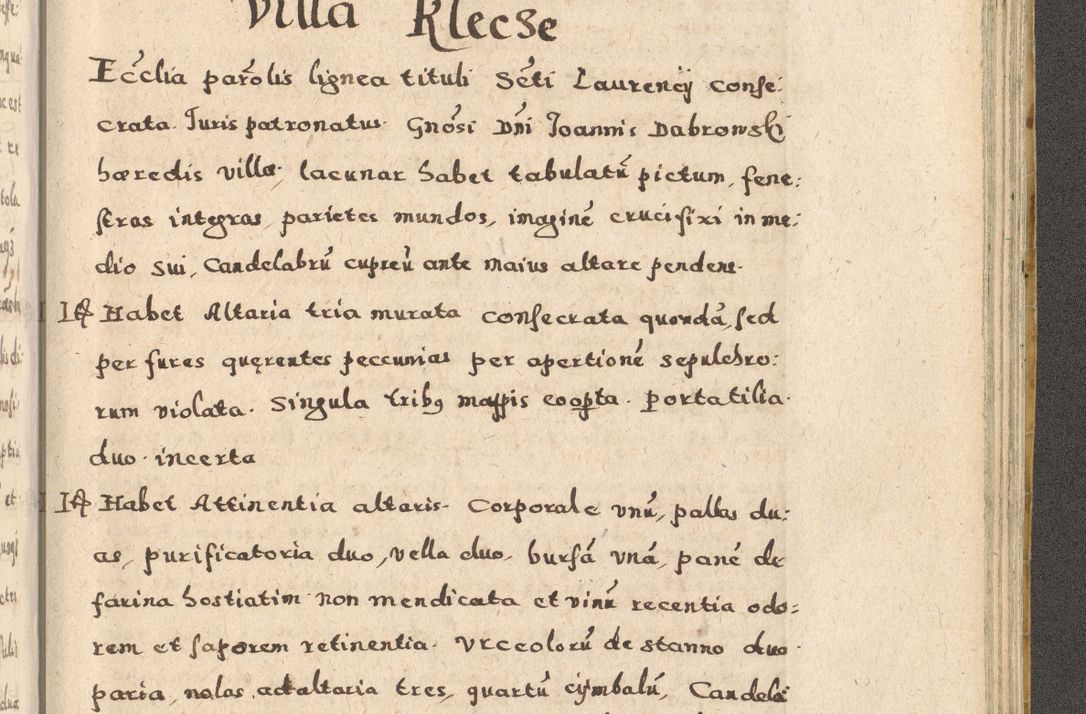 Villa Klecze
Ecclia parolis lignea tituli Scti Laurencÿ conse:
crata. Juris patronatus Gnosi Dni Joannis Dabrowski
hæredis villæ, lacunar habet tabulatū pictum, fene:
stras integras, parietes mundos, imaginē crucifixi in me:
dio sui, Candelabrū cupreū ante maius altare pendens.
Habet Altaria tria murata consecrata quondā, sed
per fures quęrentes peccunias per apertionē sepulchro:
rum violata. Singula tribꝯ mappis coopta. portatilia
duo incerta
Habet Attinentia altaris. Corporale vnū, pallas du:
as, purificatoria duo, vella duo, bursā vnā, panē de
farina hostiatim non mendicata et vinū recentia odo=
rem et saporem retinentia. Vrceolorū de stanno duo
paria, nolas ad altaria tres, quartū cÿmbalū, Candela